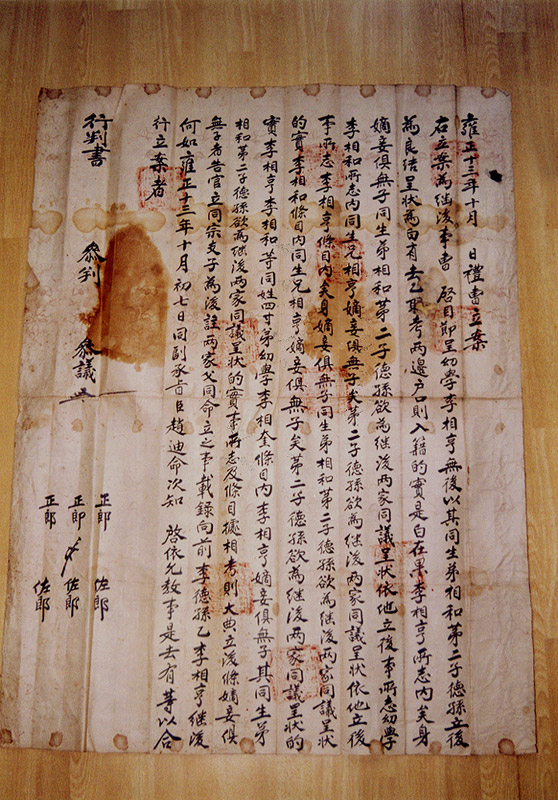 雍正十三年十月 日禮曹立案
右立案爲继後事曹 啓目節呈幼學李相亨無後以其同生弟相和第二子德孫立後
爲良结呈狀爲白有去乙取考两邊户口則入籍的實是白在果李相亨所志内矣身
嫡妾俱無子同生弟相和第二子德孫欲爲继後两家同議呈狀依他立後事所志幼學
李相和所志内同生兄相亨嫡妾俱無子矣第二子德孫欲爲继後两家同議呈狀依他立後
事所志李相亨條目内矣身嫡妾俱無子同生弟相和第二子德孫欲爲继後两家同議呈狀
的實李相和條目内同生兄相亨嫡妾俱無子矣第二子德孫欲爲继後两家同議呈狀的
實李相亨李相和等同姓四寸弟幼學李相奎條目内李相亨嫡妾俱無子其同生弟
相和第二子德孫欲爲继後两家同議呈狀的實事所志及條目據相考則大典立後條嫡妾俱
無子者告官立同宗支子爲後註两家父同命立之事載錄向前李德孫乙李相亨继後
何如雍正十三年十月初七日同副承旨臣趙迪命次知 啓依允教事是去有等以合
行立案者
行判書 叅判 叅議
正郎 正郎 正郎
佐郎 佐郎 佐郎